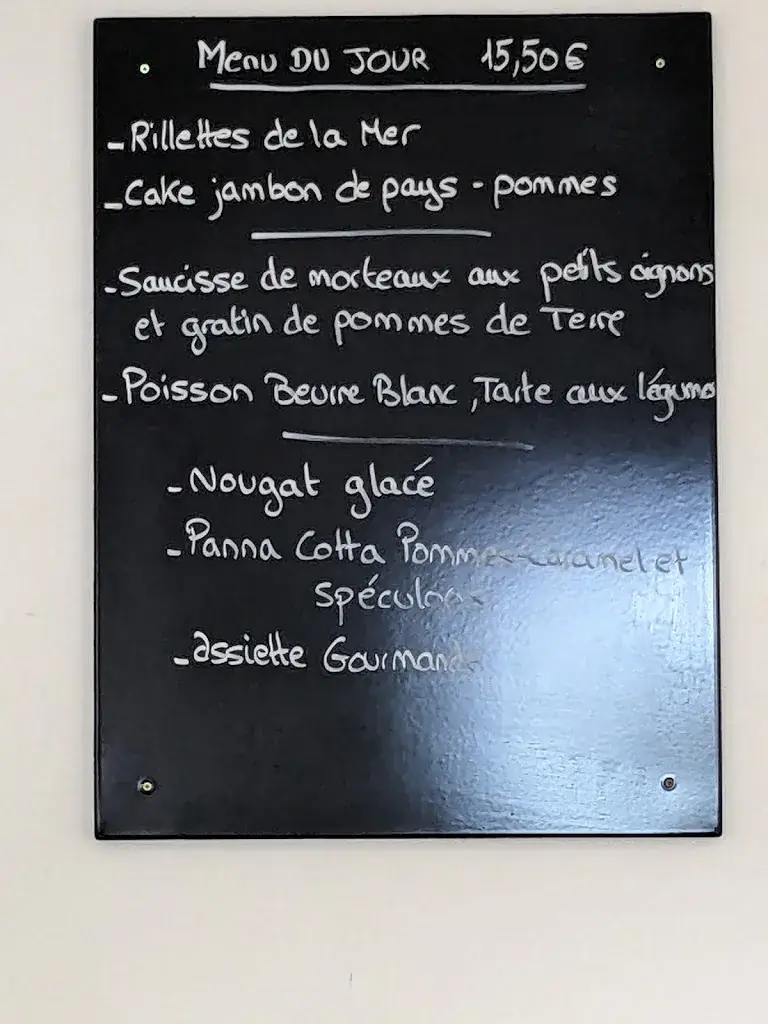 Menu DU JOUR 15,50€
- Rillettes de la Mer
- Cake jambon de pays - pommes
- Saucisse de morteaux aux petits oignons
et gratin de pommes de Terre
- Poisson Beurre Blanc, Tarte aux légumes
- Nougat glacé
- Panna Cotta Pommes caramel et
spéculoos
- assiette Gourmande